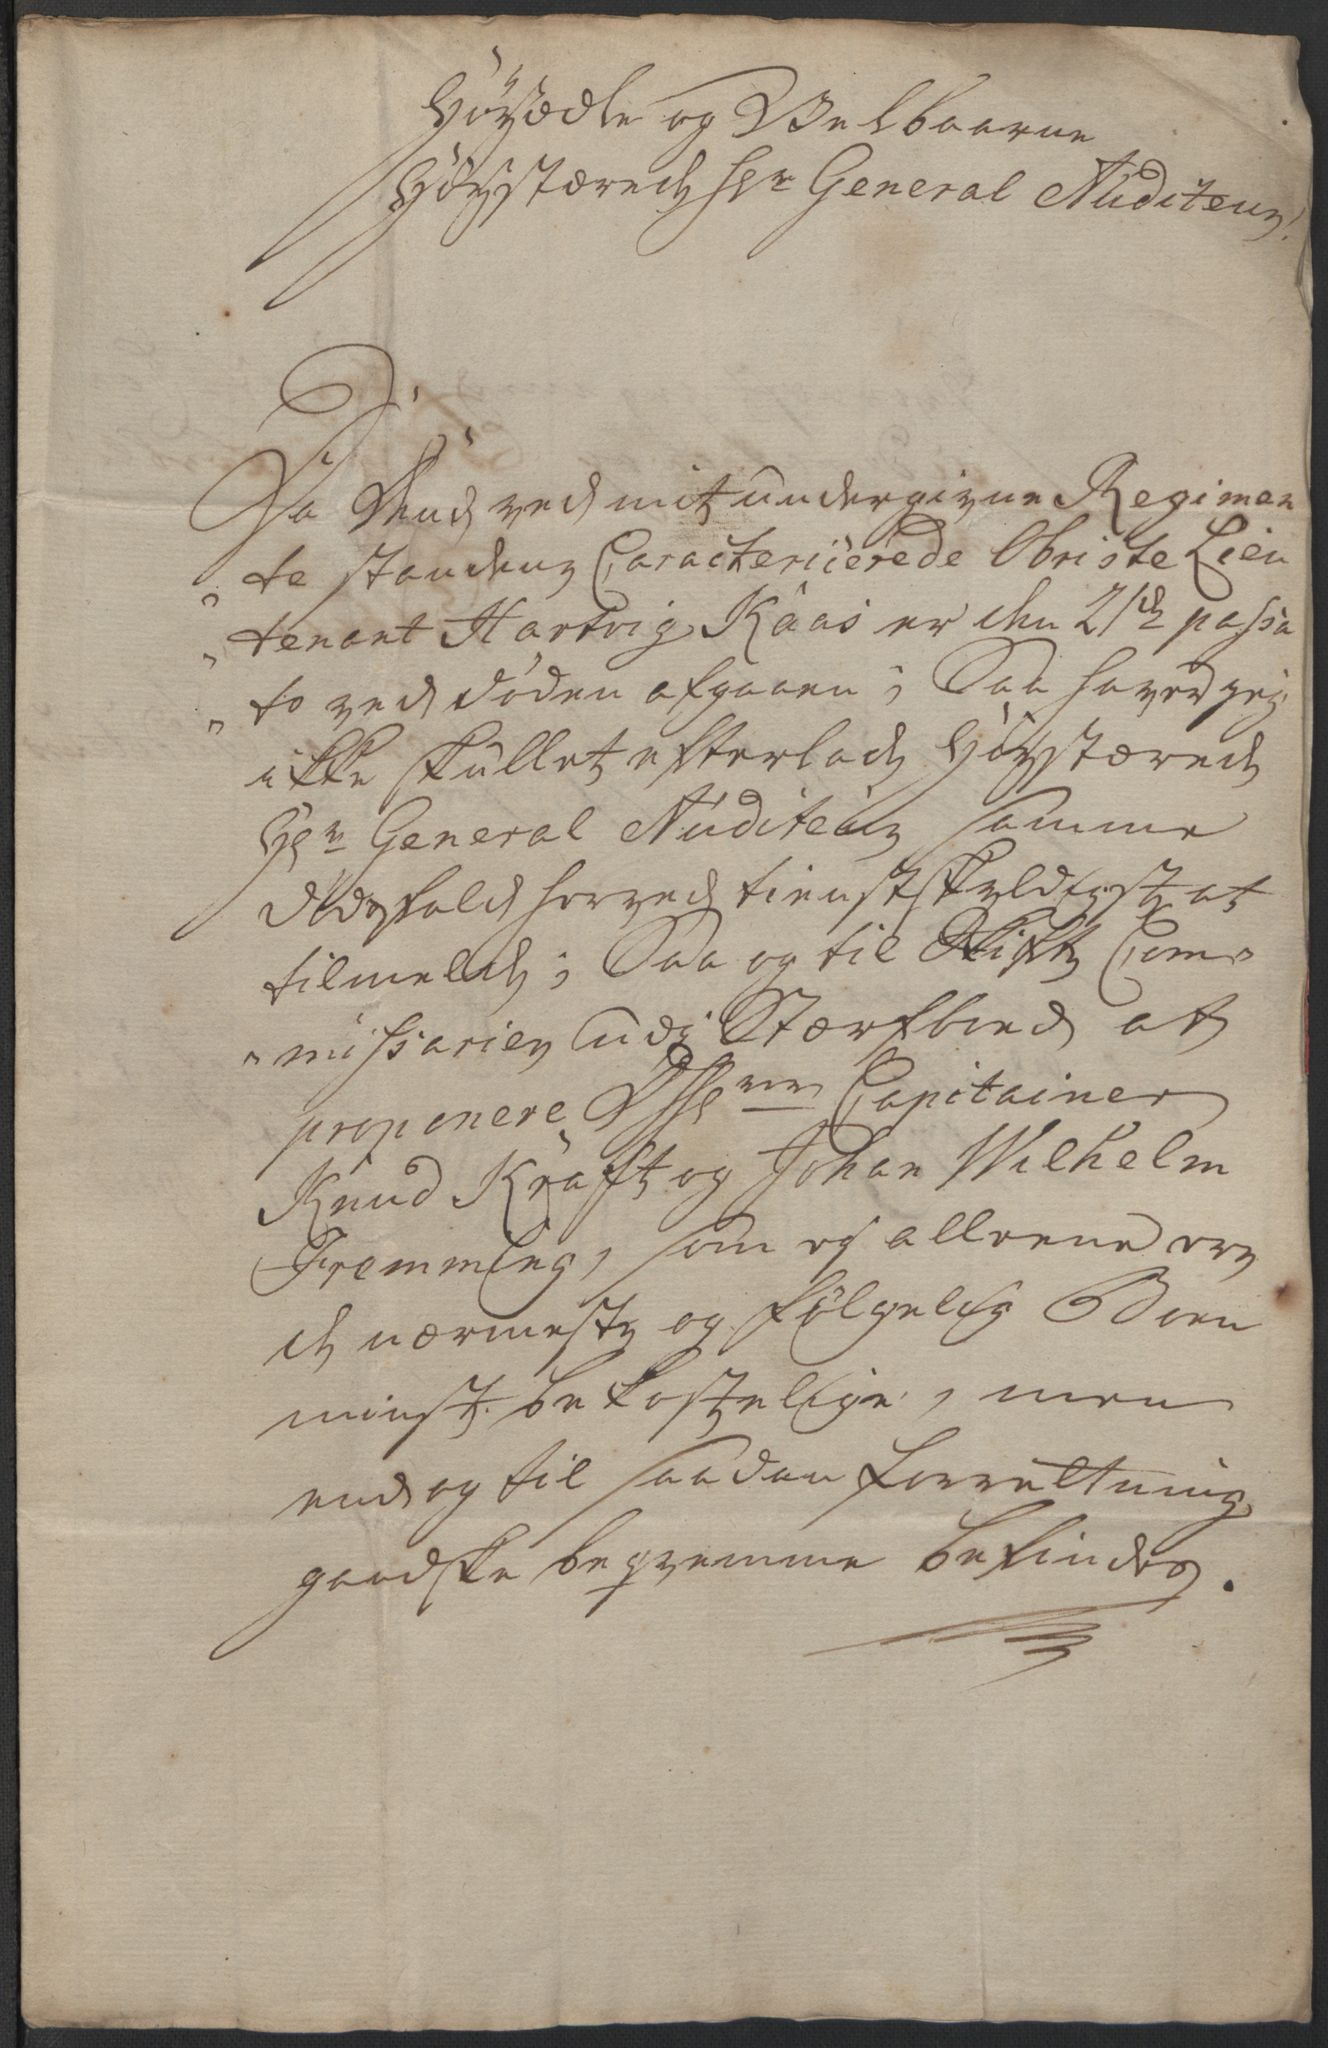 Høyædle og Velbaarne
Høystærede Hr General Auditeur!
Da Dend ved mit undergivne Regimen
"te staaende Caracteriserede Obriste Lieu
"tenant Hartvig Kaas er den 21de passa
"to ved døden afgaaen; Saa haver jeg
ikke skullet efterlade Høystærede
Hr General Auditeur samme
dødsfald herved tienstskyldigst at
tilmelde; Saa og til Skifte Com-
"missarier udi Stærfboed at
proponere Dhrr Capitainer
Knud Kraft og Johan Wilhelm
Fremming, som og alleene ere
de nærmeste og følgelig Boen
minst bekostelige, men
end og til saadan forretning
gandske beqvemme befindes.